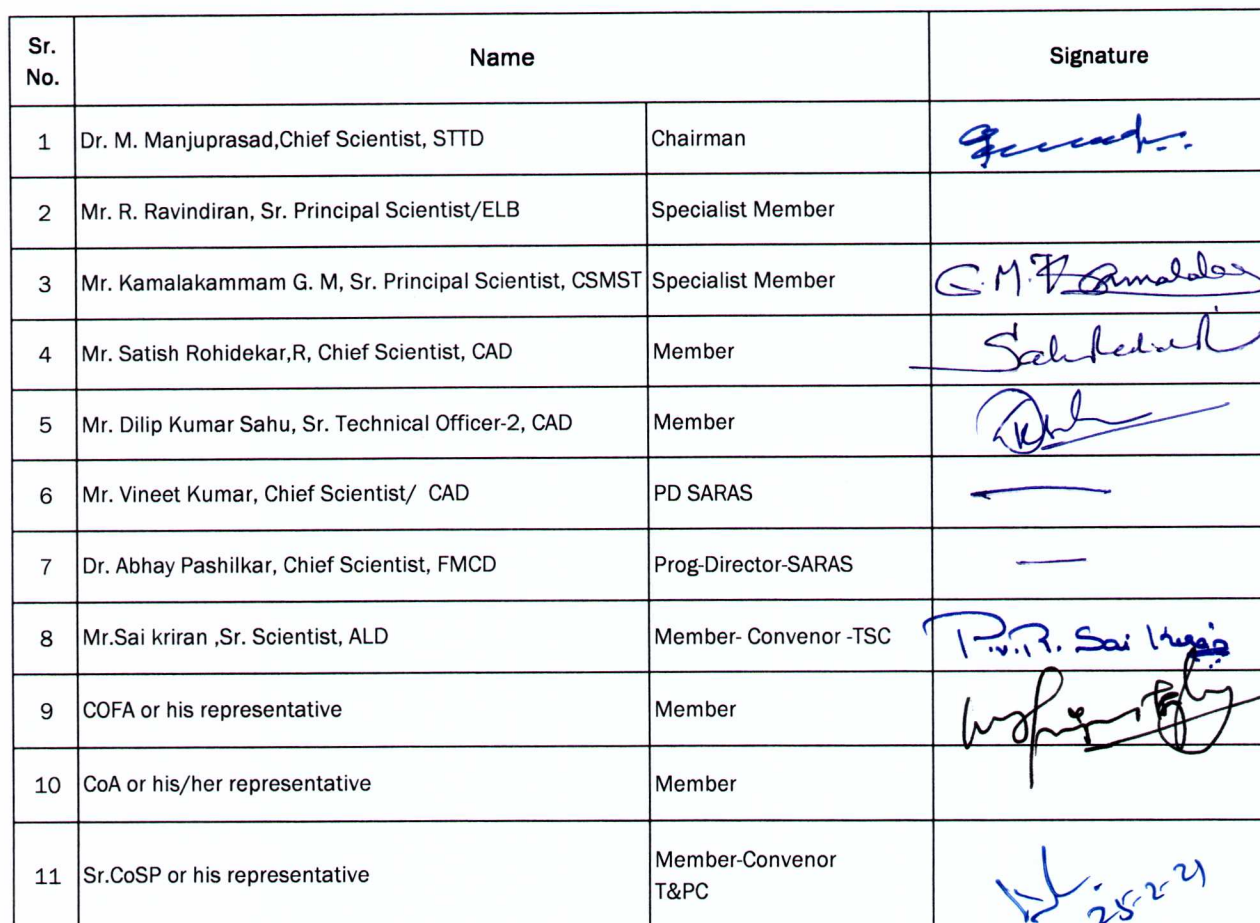 Sr. No. Name Signature
1 Dr. M. Manjuprasad,Chief Scientist, STTD Chairman
2 Mr. R. Ravindiran, Sr. Principal Scientist/ELB Specialist Member
3 Mr. Kamalakammam G. M, Sr. Principal Scientist, CSMST Specialist Member G.M.
4 Mr. Satish Rohidekar,R, Chief Scientist, CAD Member
5 Mr. Dilip Kumar Sahu, Sr. Technical Officer-2, CAD Member
6 Mr. Vineet Kumar, Chief Scientist/ CAD PD SARAS
7 Dr. Abhay Pashilkar, Chief Scientist, FMCD Prog-Director-SARAS
8 Mr.Sai kriran ,Sr. Scientist, ALD Member- Convenor -TSC P.V.R. Sai
9 COFA or his representative Member
10 CoA or his/her representative Member
11 Sr.CoSP or his representative Member-Convenor
T&PC 25-2-21